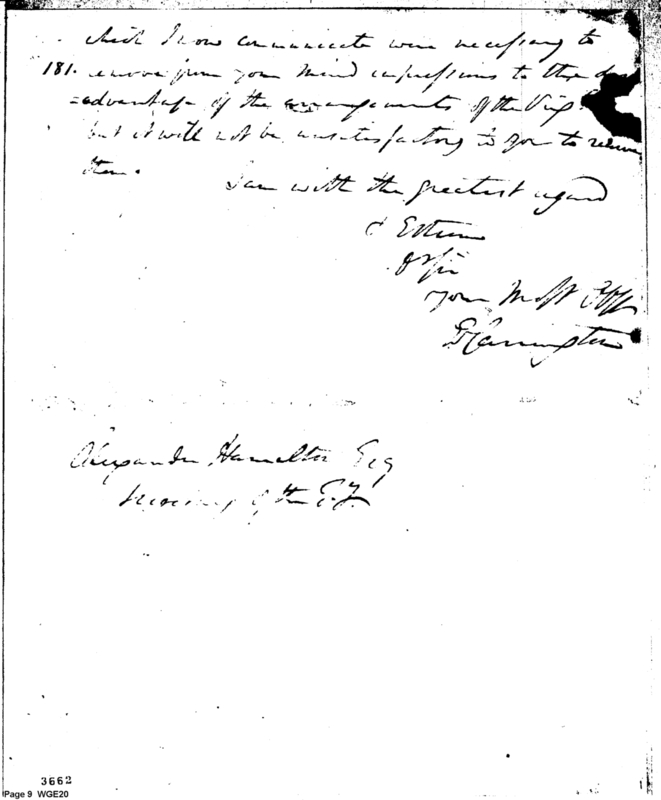 which I now communicate were necessary to
181. remove from your mind impressions to the dis
=advantage of the arrangements of the Virg
but it will not be unsatisfactory to you to receive
them.
I am with the greatest regard
& Esteem
Sir
your Most
E Carrington
Alexander Hamilton Esq
Secretary of the T.
3662
Page 9 WGE20